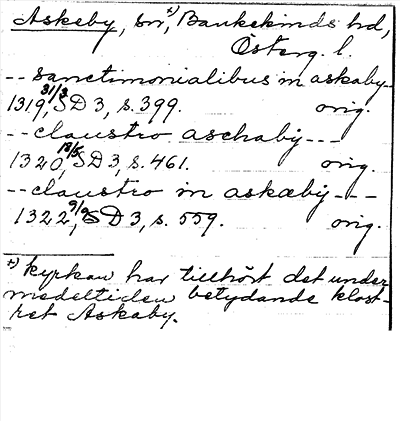 Askeby, sn,*) Bankekinds hd,
Österg. l.
-- sanctimonialibus in askaby --
1319 31/3, SD 3, s. 399. orig.
-- claustro aschaby ---
1320 18/5, SD 3, s. 461. orig.
-- claustro in askæby ---
1322 9/9, SD 3, s. 559. orig.
*) Kyrkan har tillhört det under
medeltiden betydande klost-
ret Askaby.